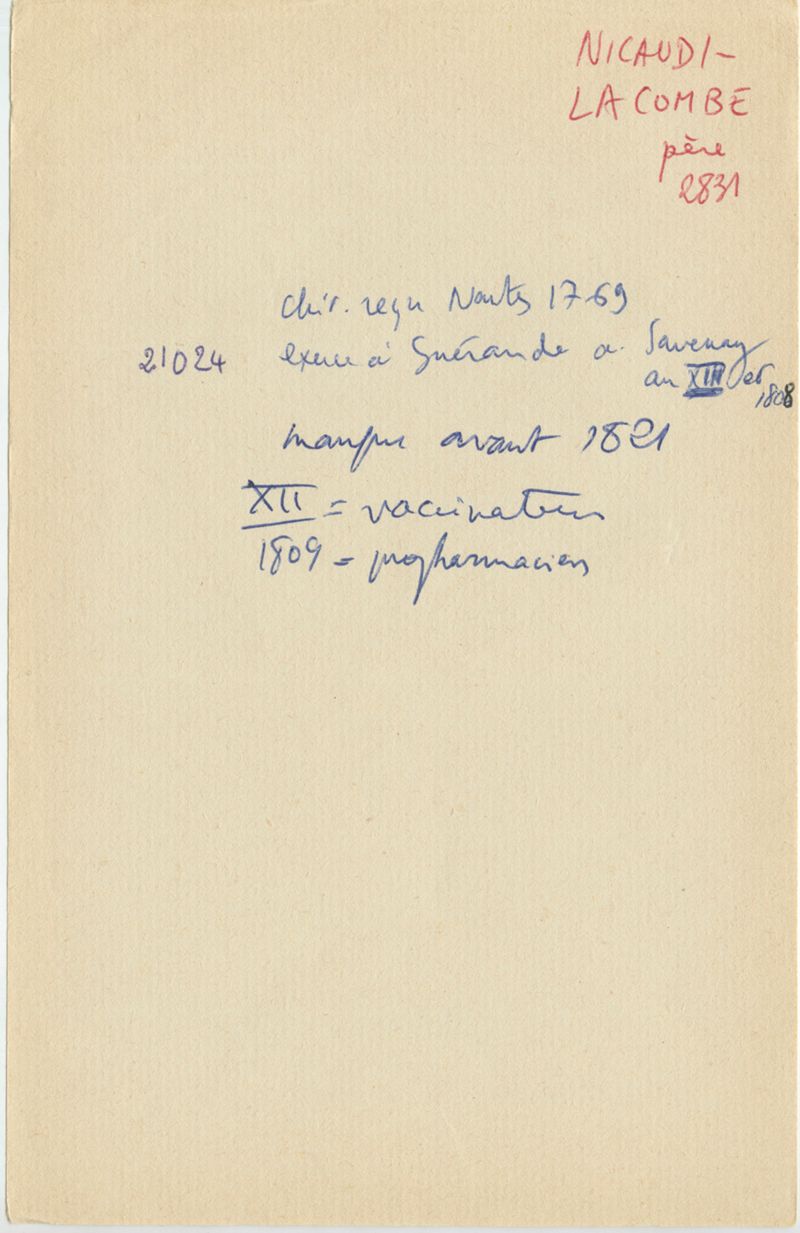 NICAUDI-
LACOMBE
père
2831
chir. reçu Nantes 1769
21024 exerce à Guérande a. Savenay
an XIII et
1808
manque avant 1821
XII = vaccinateur
1809 = propharmacien